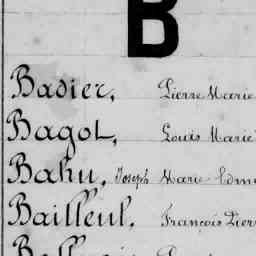 B
Basier, Pierre Marie
Bagot, Louis Marie
Bahu, Joseph Marie Edm
Bailleul, François Pierr